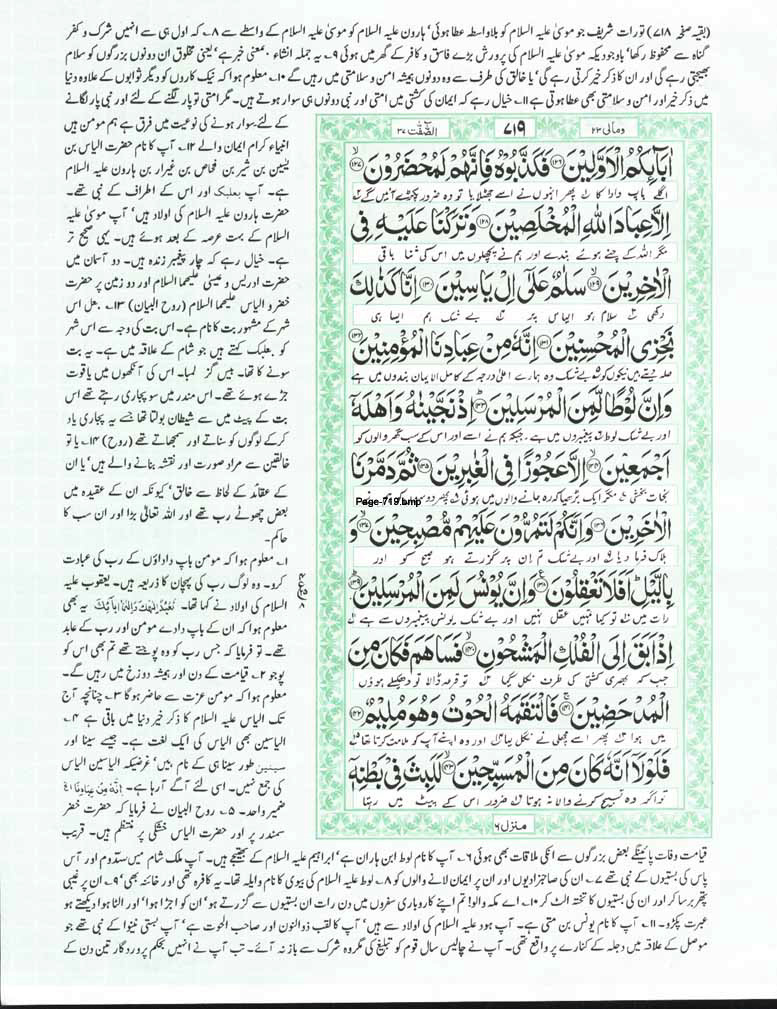 (بقیہ صفحہ ۷۱۸) تورات شریف جو موسیٰ علیہ السلام کو بلاواسطہ عطا ہوئی' ہارون علیہ السلام کو موسیٰ علیہ السلام کے واسطے سے ۸۔ کہ اول ہی سے انہیں شرک و کفر
گناہ سے محفوظ رکھا' باوجودیکہ موسیٰ علیہ السلام کی پرورش بڑے فاسق و کافر کے گھر میں ہوئی ۹۔ یہ جملہ انشاء بمعنی خبر ہے' یعنی مخلوق ان دونوں بزرگوں کو سلام
بھیجتی رہے گی اور ان کا ذکر خیر کرتی رہے گی' یا خالق کی طرف سے وہ دونوں ہمیشہ امن و سلامتی میں رہیں گے ۱۰۔ معلوم ہوا کہ نیک کاروں کو دیگر ثوابوں کے علاوہ دنیا
میں ذکر خیر اور امن و سلامتی بھی عطا ہوتی ہے ۱۱۔ خیال رہے کہ ایمان کی کشتی میں امتی اور نبی دونوں ہی سوار ہوتے ہیں۔ مگر امتی تو پار لگنے کے لئے اور نبی پار لگانے
کے لئے سوار ہونے کی نوعیت میں فرق ہے ہم مومن ہیں
انبیاء کرام ایمان والے ۱۲۔ آپ کا نام حضرت الیاس بن
یسین بن شیر بن فحاص بن غیرار بن ہارون علیہ السلام
ہے۔ آپ بعلبک اور اس کے اطراف کے نبی تھے۔
حضرت ہارون علیہ السلام کی اولاد ہیں' آپ موسیٰ علیہ
السلام کے بہت عرصہ کے بعد ہوئے ہیں۔ یہی صحیح تر
ہے۔ خیال رہے کہ چار پیغمبر زندہ ہیں۔ دو آسمان میں
حضرت ادریس و عیسیٰ علیہما السلام اور دو زمین پر حضرت
خضر و الیاس علیہما السلام (روح البیان) ۱۳۔ بعل اس
شہر کے مشہور بت کا نام ہے۔ اس بت کی وجہ سے اس شہر
کو بعلبک کہتے ہیں جو شام کے علاقہ میں ہے۔ یہ بت
سونے کا تھا۔ بیس گز لمبا۔ اس کی آنکھوں میں یاقوت
جڑے ہوئے تھے۔ اس مندر میں سو پجاری رہتے تھے اس
بت کے پیٹ میں سے شیطان بولتا تھا جسے یہ پجاری یاد
کر کے لوگوں کو سناتے اور سمجھاتے تھے (روح) ۱۴۔ یا تو
خالقین سے مراد صورت اور نقشہ بنانے والے ہیں' یا ان
کے عقائد کے لحاظ سے خالق' کیونکہ ان کے عقیدہ میں
بعض چھوٹے رب تھے اور اللہ تعالیٰ بڑا اور ان سب کا
حاکم۔
۱۔ معلوم ہوا کہ مومن باپ داداؤں کے رب کی عبادت
کرو۔ وہ لوگ رب کی پہچان کا ذریعہ ہیں۔ یعقوب علیہ
السلام کی اولاد نے کہا تھا۔ نَعْبُدُ اِلٰهَكَ وَاِلٰهَ اٰبَآئِكَ یہ بھی
معلوم ہوا کہ ان کے باپ دادے مومن اور رب کے عابد
تھے۔ تو فرمایا کہ جس رب کو وہ پوجتے تھے تم بھی اس کو
پوجو ۲۔ قیامت کے دن اور ہمیشہ دوزخ میں رہیں گے۔
معلوم ہوا کہ مومن عزت سے حاضر ہو گا ۳۔ چنانچہ آج
تک الیاس علیہ السلام کا ذکر خیر دنیا میں باقی ہے ۴۔
الیاسین بھی الیاس کی ایک لغت ہے۔ جیسے سینا اور
سینین طور سینا ہی کے نام ہیں' غرضیکہ الیاسین الیاس
کی جمع نہیں۔ اسی لئے آگے آ رہا ہے۔ اِنَّهٗ مِنْ عِبَادِنَا
ضمیر واحد۔ ۵۔ روح البیان نے فرمایا کہ حضرت خضر
سمندر پر اور حضرت الیاس خشکی پر منتظم ہیں۔ قریب
ومالی ۲۳
۷۱۹
الصّٰفّٰت ۳۷
اٰبَآئِكُمُ الْاَوَّلِيْنَ ۝۱۲۶ فَكَذَّبُوْهُ فَاِنَّهُمْ لَمُحْضَرُوْنَ ۝۱۲۷
اگلے باپ دادا کا پھر انہوں نے اسے جھٹلایا تو وہ ضرور پکڑے آئیں گے
اِلَّا عِبَادَ اللّٰهِ الْمُخْلَصِيْنَ ۝۱۲۸ وَتَرَكْنَا عَلَيْهِ فِي
مگر اللہ کے چنے ہوئے بندے اور ہم نے پچھلوں میں اس کی ثنا باقی
الْاٰخِرِيْنَ ۝۱۲۹ سَلٰمٌ عَلٰٓى اِلْ يَاسِيْنَ ۝۱۳۰ اِنَّا كَذٰلِكَ
رکھی سلام ہو الیاس پر بے شک ہم ایسا ہی
نَجْزِي الْمُحْسِنِيْنَ ۝۱۳۱ اِنَّهٗ مِنْ عِبَادِنَا الْمُؤْمِنِيْنَ ۝۱۳۲
صلہ دیتے ہیں نیکوں کو بے شک وہ ہمارے اعلیٰ درجہ کے کامل الایمان بندوں میں ہے
وَاِنَّ لُوْطًا لَّمِنَ الْمُرْسَلِيْنَ ۝۱۳۳ اِذْ نَجَّيْنٰهُ وَاَهْلَهٗٓ
اور بے شک لوط پیغمبروں میں ہے۔ جبکہ ہم نے اسے اور اس کے سب گھر والوں کو
اَجْمَعِيْنَ ۝۱۳۴ اِلَّا عَجُوْزًا فِي الْغٰبِرِيْنَ ۝۱۳۵ ثُمَّ دَمَّرْنَا
نجات بخشی مگر ایک بڑھیا کہ رہ جانے والوں میں ہوئی پھر دوسروں کو ہم نے
Page-719.bmp
الْاٰخَرِيْنَ ۝۱۳۶ وَاِنَّكُمْ لَتَمُرُّوْنَ عَلَيْهِمْ مُّصْبِحِيْنَ ۝۱۳۷ وَ
ہلاک فرما دیا اور بے شک تم ان پر گزرتے ہو صبح کو اور
بِالَّيْلِ ؕ اَفَلَا تَعْقِلُوْنَ ۝۱۳۸ وَاِنَّ يُوْنُسَ لَمِنَ الْمُرْسَلِيْنَ ۝۱۳۹
رات میں تو کیا تمہیں عقل نہیں اور بے شک یونس پیغمبروں سے ہے
اِذْ اَبَقَ اِلَى الْفُلْكِ الْمَشْحُوْنِ ۝۱۴۰ فَسَاهَمَ فَكَانَ مِنَ
جب کہ بھری کشتی کی طرف نکل گیا تو قرعہ ڈالا تو دھکیلے ہوؤں
الْمُدْحَضِيْنَ ۝۱۴۱ فَالْتَقَمَهُ الْحُوْتُ وَهُوَ مُلِيْمٌ ۝۱۴۲
میں ہوا پھر اسے مچھلی نے نگل لیا اور وہ اپنے آپ کو ملامت کرتا تھا
فَلَوْلَآ اَنَّهٗ كَانَ مِنَ الْمُسَبِّحِيْنَ ۝۱۴۳ لَلَبِثَ فِيْ بَطْنِهٖٓ
تو اگر وہ تسبیح کرنے والا نہ ہوتا ضرور اس کے پیٹ میں رہتا
منزل ۶
قیامت وفات پائیں گے بعض بزرگوں سے انکی ملاقات بھی ہوئی ۶۔ آپ کا نام لوط ابن ہاران ہے' ابراہیم علیہ السلام کے بھتیجے ہیں۔ آپ ملک شام میں سدوم اور آس
پاس کی بستیوں کے نبی تھے ۷۔ ان کی صاحبزادیوں اور ان پر ایمان لانے والوں کو ۸۔ لوط علیہ السلام کی بیوی کا نام واہلہ تھا۔ یہ کافرہ تھی اور خائنہ بھی' ۹۔ ان پر غیبی
پتھر برسا کر اور ان کی بستیوں کا تختہ الٹ کر ۱۰۔ اے مکہ والو! تم اپنے کاروباری سفروں میں دن رات ان بستیوں سے گزرتے ہو' ان کو اجڑا ہوا' اور الٹا ہوا دیکھتے ہو
عبرت پکڑو۔ ۱۱۔ آپ کا نام یونس بن متی ہے۔ آپ ہود علیہ السلام کی اولاد سے ہیں' آپ کا لقب ذوالنون اور صاحب الحوت ہے' آپ بستی نینوا کے نبی تھے جو
موصل کے علاقہ میں دجلہ کے کنارے پر واقع تھی۔ آپ نے چالیس سال قوم کو تبلیغ کی مگر وہ شرک سے باز نہ آئے۔ تب آپ نے انہیں بحکم پروردگار تین دن کے